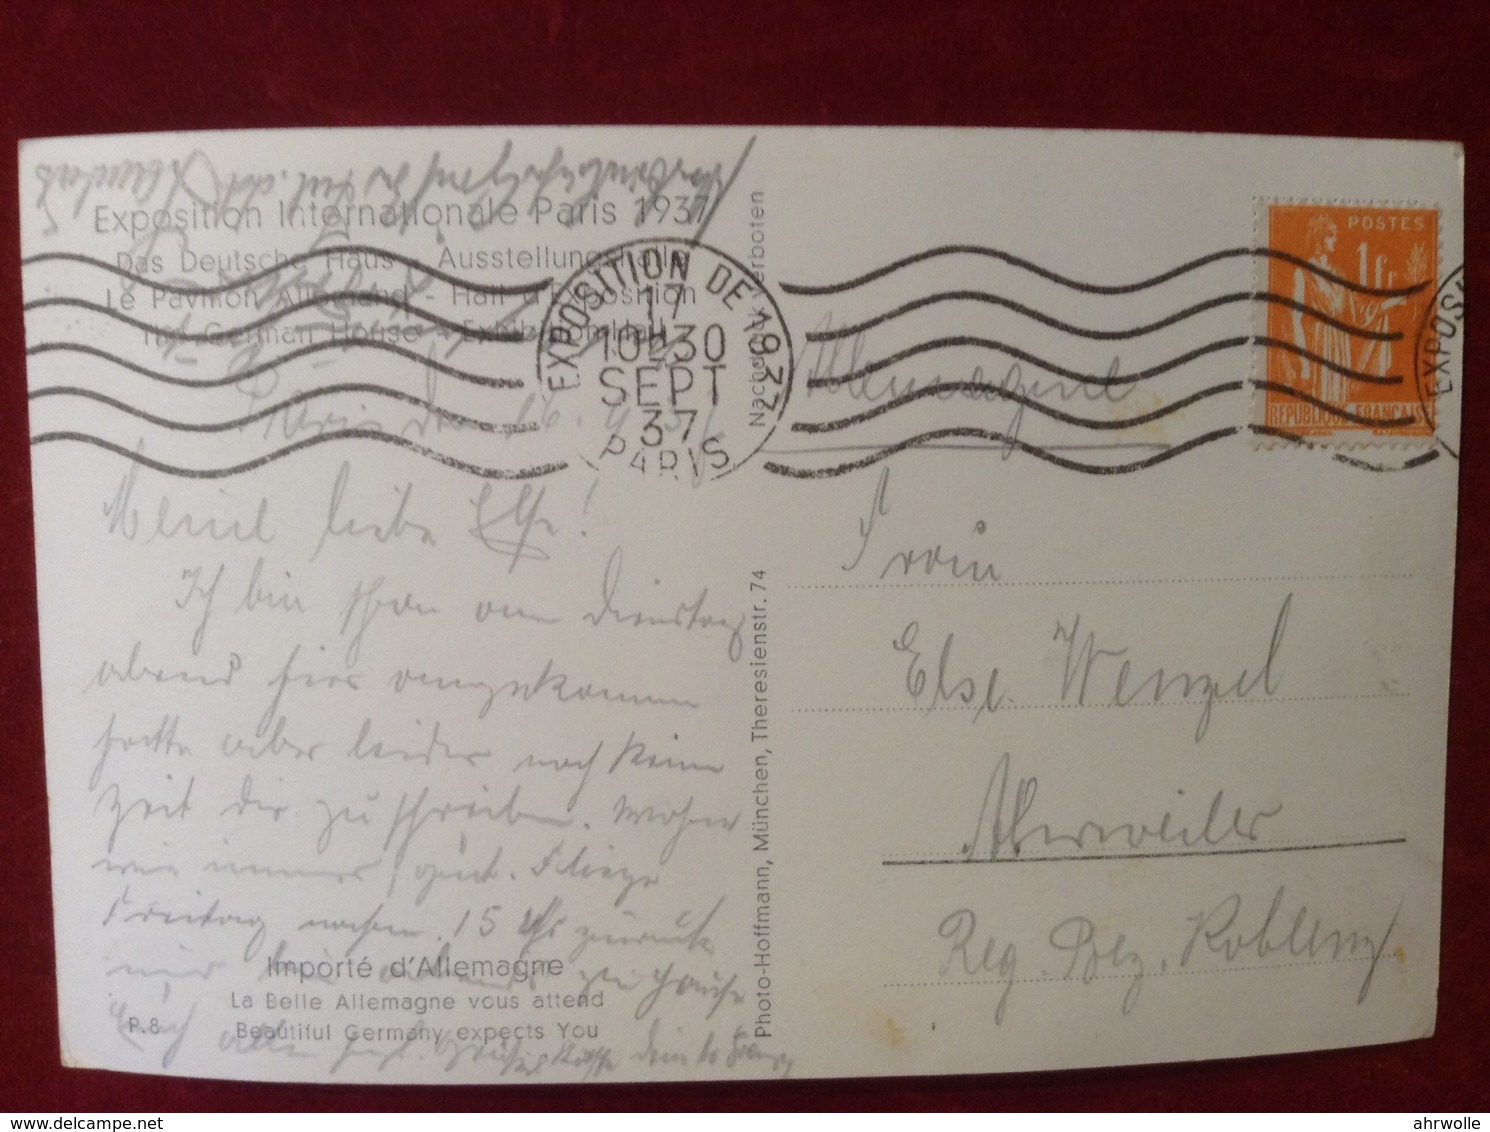 Exposition Internationale Paris 1937
Das Deutsche Haus - Ausstellungshalle
Le Pavillon Allemand - Hall d'Exposition
The German House - Exhibition Hall
Paris den 16. 9. 37
Meine liebe Else!
Ich bin schon am Dienstag
abend hier angekommen
hatte aber leider noch keine
Zeit dir zu schreiben. Wohne
wie immer gut. Fliege
Freitag nachm. 15 Uhr zurück
zu Hause
Euch allen herzl. Grüße
Importé d'Allemagne
La Belle Allemagne vous attend
P. 8 Beautiful Germany expects You
Nachdruck verboten
Photo-Hoffmann, München, Theresienstr. 74
EXPOSITION DE 1937
17
10H30
SEPT
37
PARIS
POSTES
1fr
REPUBLIQUE FRANCAISE
EXPOSI
Allemagne
Frau
Else Wenzel
Ahrweiler
Reg. Bez. Koblenz
ahrwolle